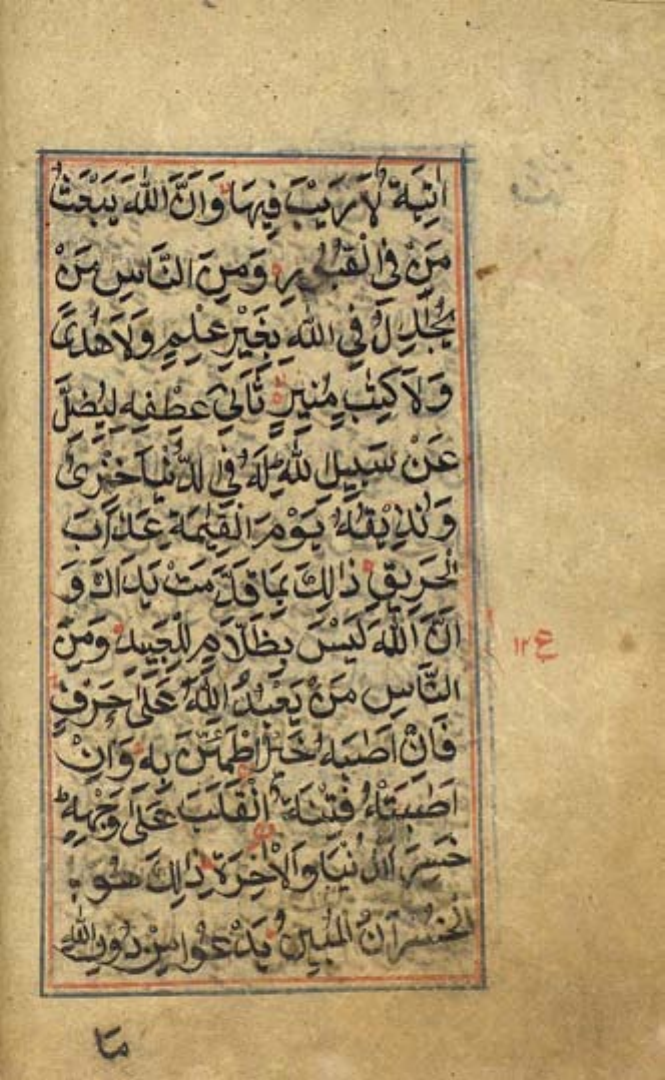 اٰتِيَةٌ لَا رَيْبَ فِيهَا وَاَنَّ اللّٰهَ يَبْعَثُ
مَنْ فِى الْقُبُورِ وَمِنَ النَّاسِ مَنْ
يُجَادِلُ فِى اللّٰهِ بِغَيْرِ عِلْمٍ وَلَا هُدًى
وَلَا كِتٰبٍ مُنِيرٍ ثَانِىَ عِطْفِهِ لِيُضِلَّ
عَنْ سَبِيلِ اللّٰهِ لَهُ فِى الدُّنْيَا خِزْىٌ
وَنُذِيقُهُ يَوْمَ الْقِيٰمَةِ عَذَابَ
الْحَرِيقِ ذٰلِكَ بِمَا قَدَّمَتْ يَدَاكَ وَ
اَنَّ اللّٰهَ لَيْسَ بِظَلَّامٍ لِلْعَبِيدِ وَمِنَ
النَّاسِ مَنْ يَعْبُدُ اللّٰهَ عَلٰى حَرْفٍ
فَاِنْ اَصَابَهُ خَيْرٌ اطْمَئَنَّ بِهِ وَاِنْ
اَصَابَتْهُ فِتْنَةٌ انْقَلَبَ عَلٰى وَجْهِهِ
خَسِرَ الدُّنْيَا وَالْاٰخِرَةَ ذٰلِكَ هُوَ
الْخُسْرَانُ الْمُبِينُ يَدْعُوا مِنْ دُونِ اللّٰهِ
مَا
ع ١٢